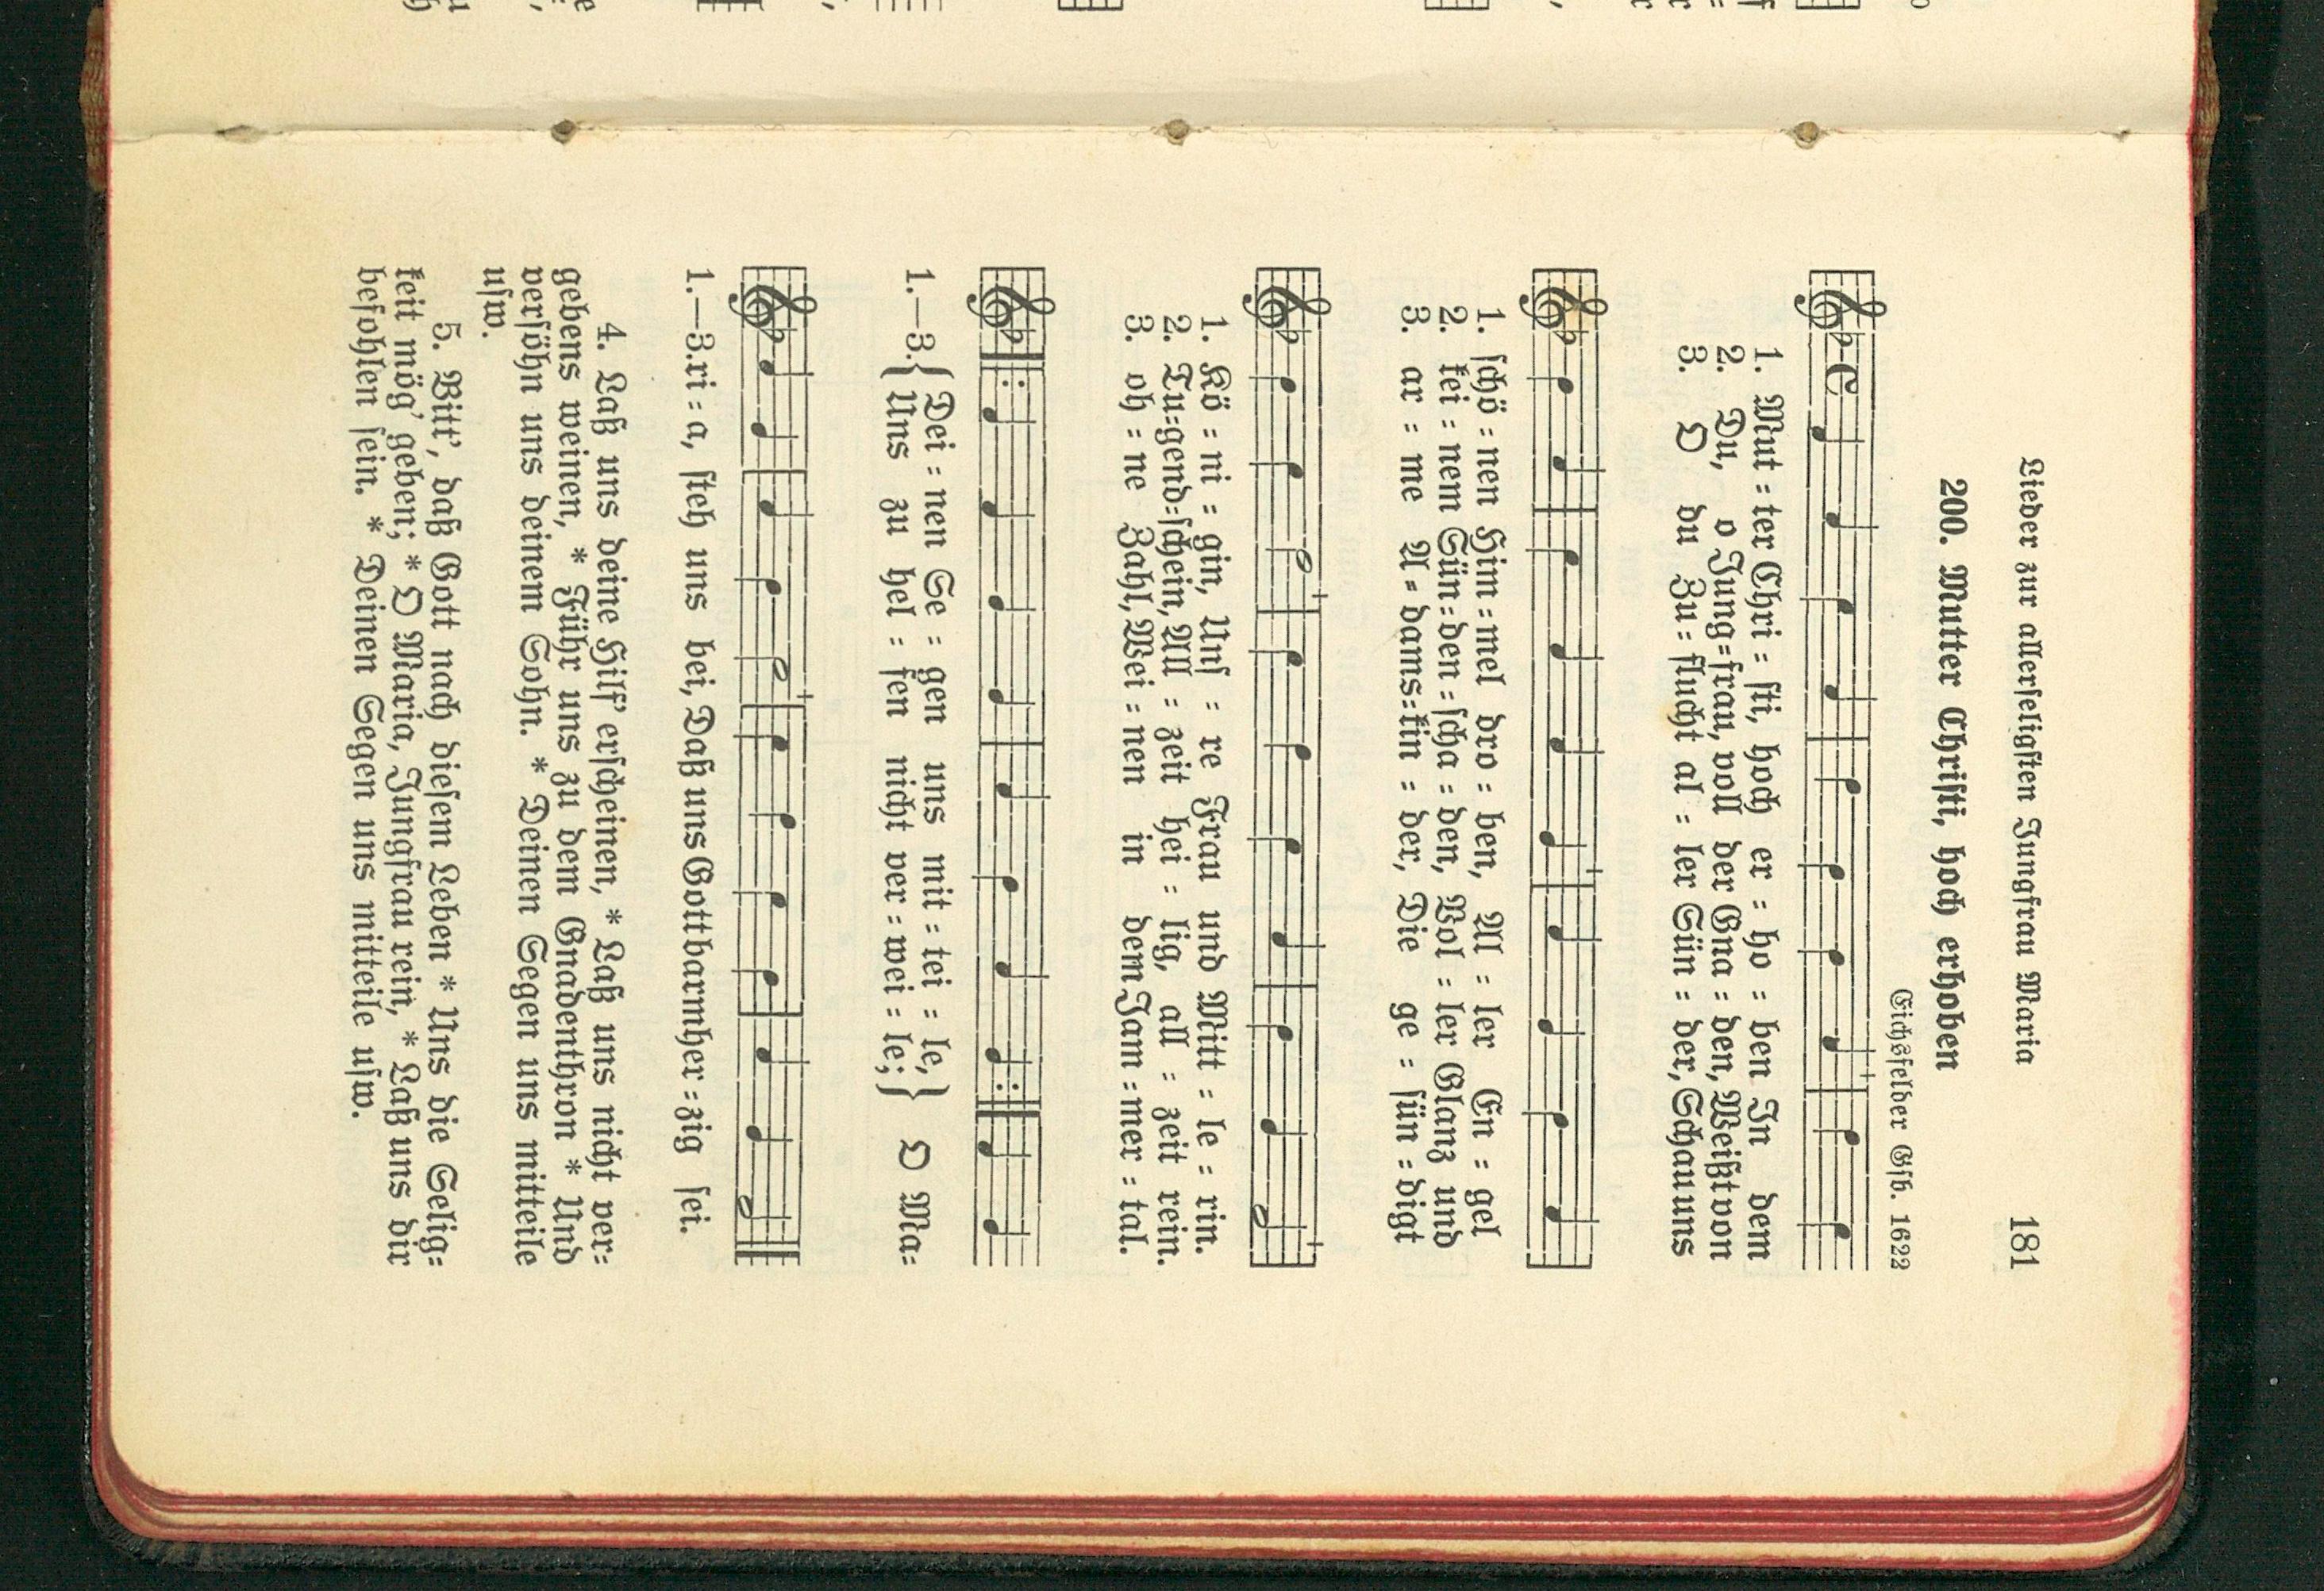 Lieder zur allerseligsten Jungfrau Maria 181
200. Mutter Christi, hoch erhoben
Eichsfelder Gsb. 1622
1. Mut = ter Chri = sti, hoch er = ho = ben In dem
2. Du, o Jung = frau, voll der Gna = den, Weißt von
3. O du Zu = flucht al = ler Sün = der, Schau uns
1. schö = nen Him = mel dro = ben, Al = ler En = gel
2. kei = nem Sün = den = scha = den, Vol = ler Glanz und
3. ar = me A = dams = kin = der, Die ge = sün = digt
1. Kö = ni = gin, Uns = re Frau und Mitt = le = rin.
2. Tu = gend = schein, All = zeit hei = lig, all = zeit rein.
3. oh = ne Zahl, Wei = nen in dem Jam = mer = tal.
1.—3. { Dei = nen Se = gen uns mit = tei = le, } O Ma=
{ Uns zu hel = fen nicht ver = wei = le; }
1.—3. ri = a, steh uns bei, Daß uns Gott barmher = zig sei.
4. Laß uns deine Hilf’ erscheinen, * Laß uns nicht ver=
gebens weinen, * Führ uns zu dem Gnadenthron * Und
versöhn uns deinem Sohn. * Deinen Segen uns mitteile
usw.
5. Bitt’, daß Gott nach diesem Leben * Uns die Selig=
keit mög’ geben; * O Maria, Jungfrau rein, * Laß uns dir
befohlen sein. * Deinen Segen uns mitteile usw.